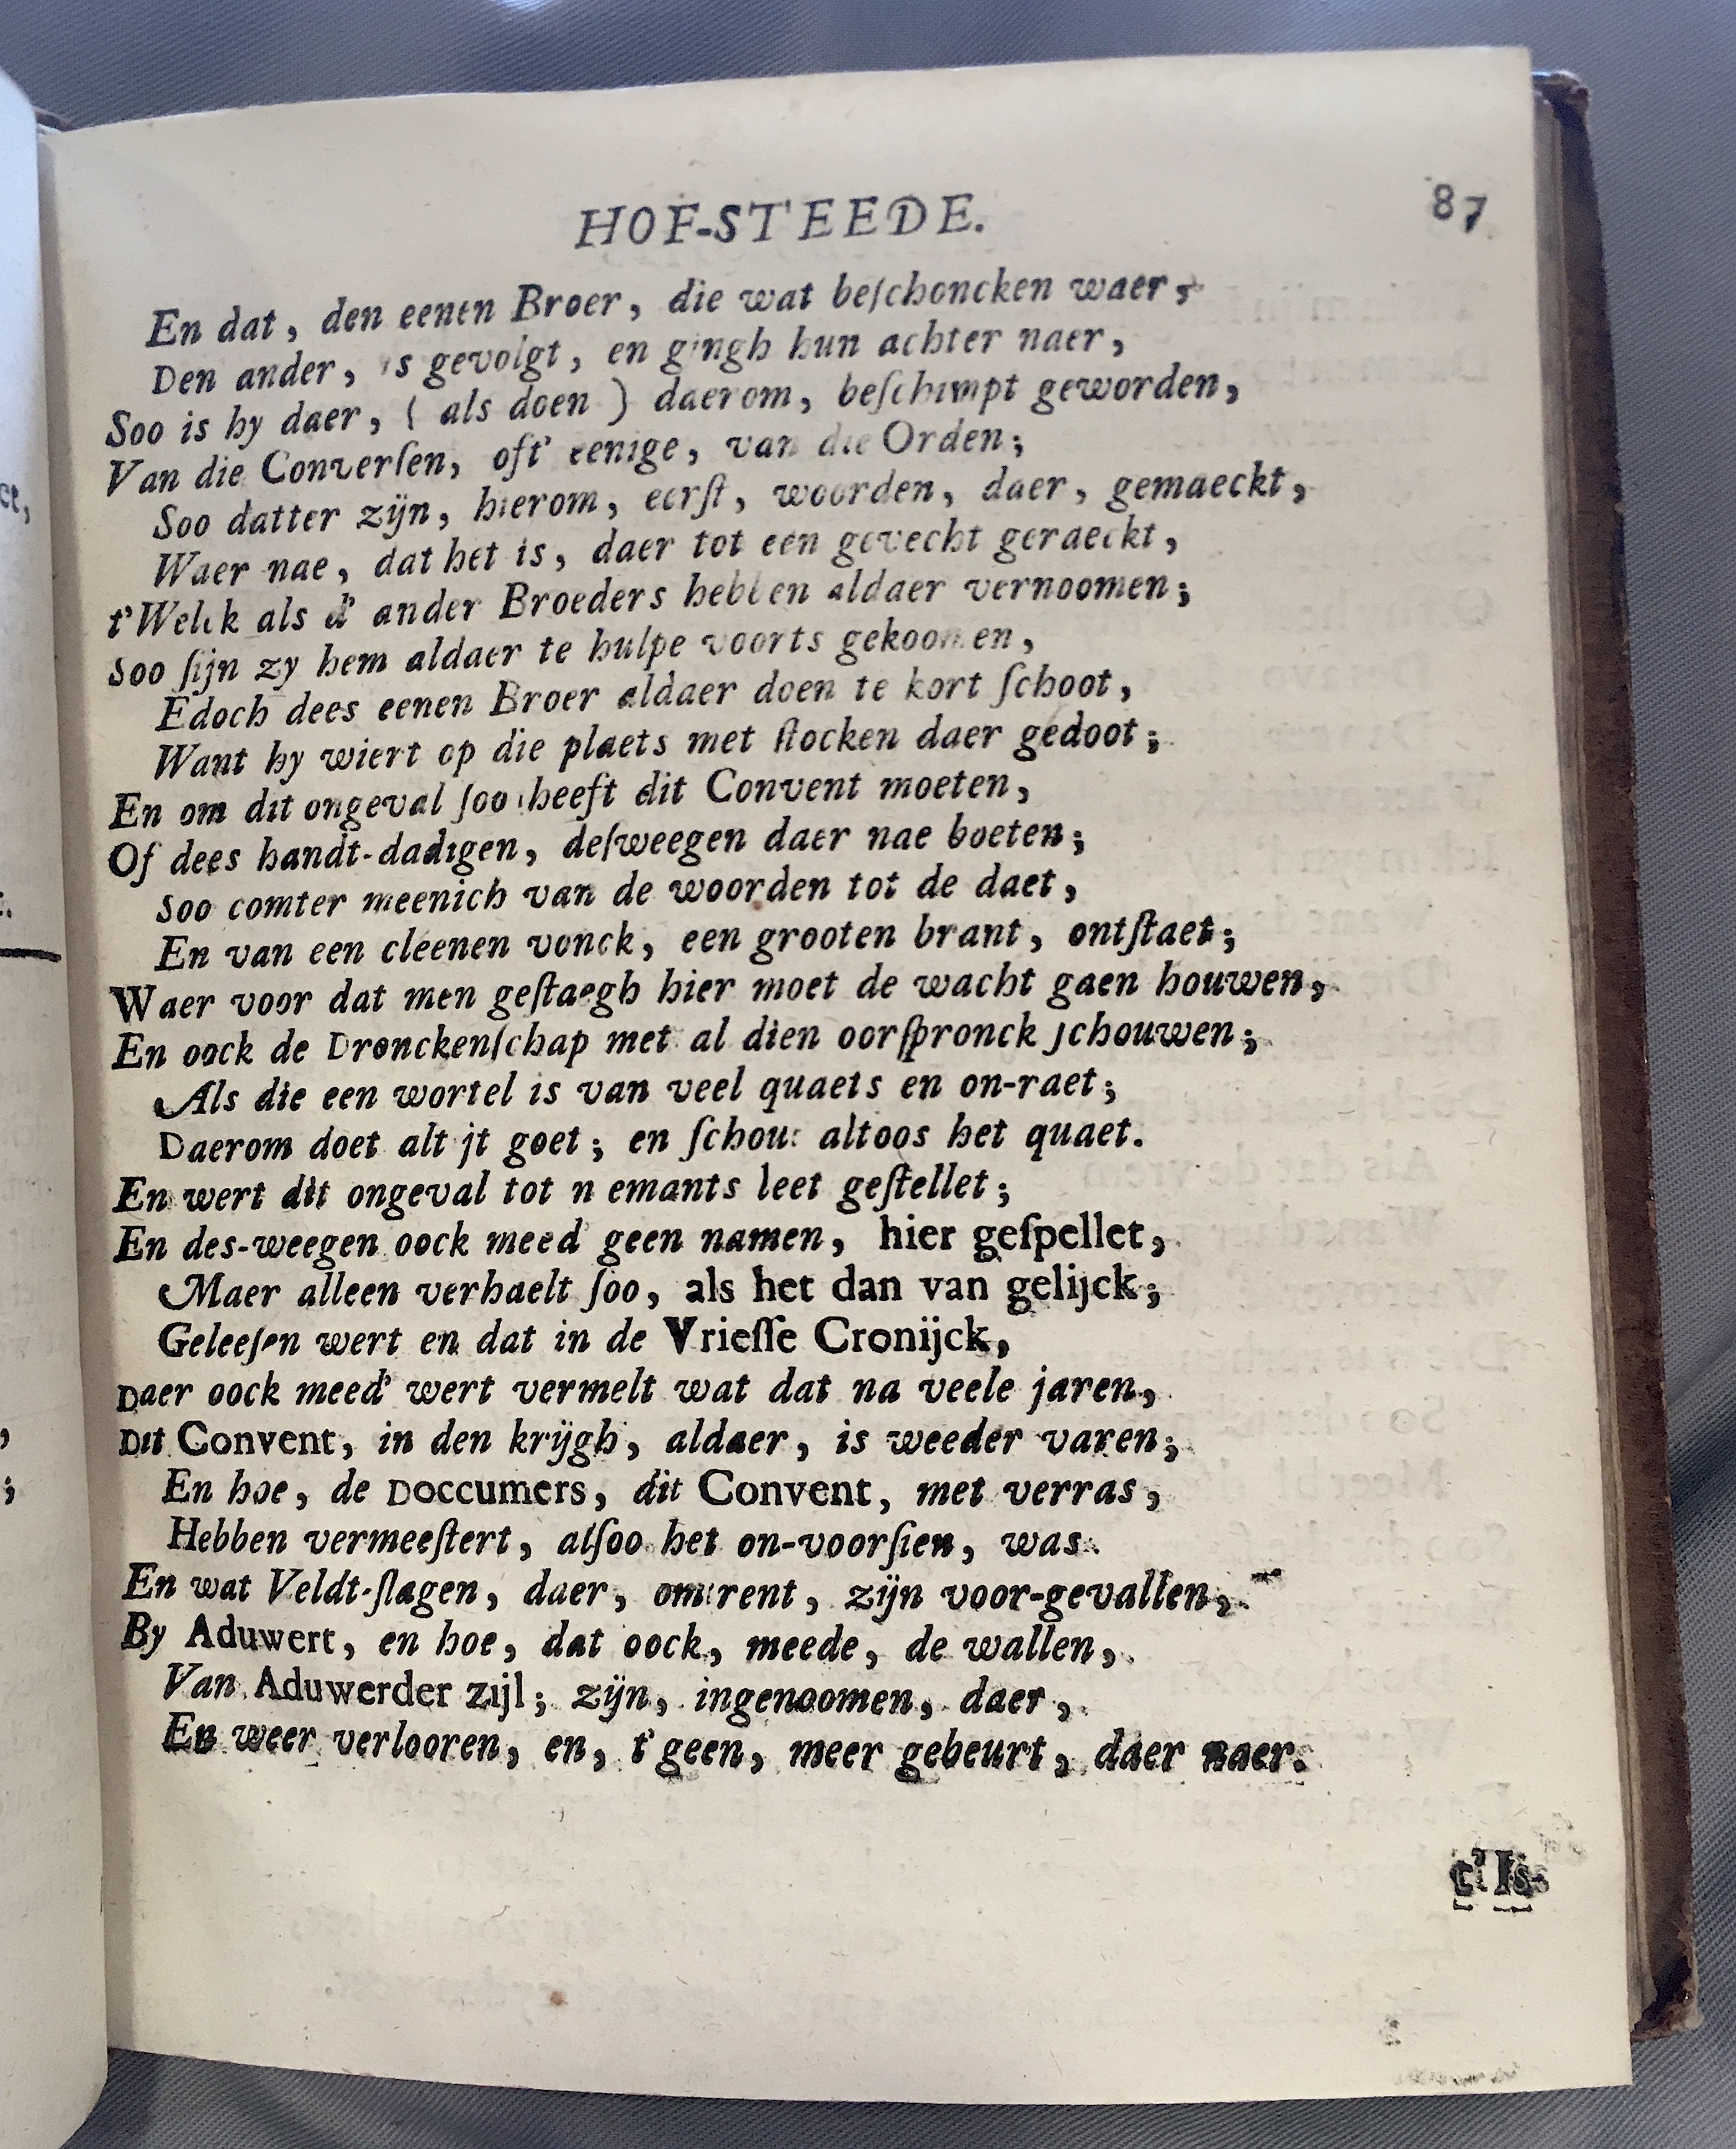 HOF-STEEDE. 87
En dat, den eenen Broer, die wat beſchoncken waer,
Den ander, is gevolgt, en gingh hun achter naer,
Soo is hy daer, ( als doen ) daerom, beſchimpt geworden,
Van die Converſen, oft' eenige, van die Orden;
Soo datter zijn, hierom, eerſt, woorden, daer, gemaeckt,
Waer nae, dat het is, daer tot een gevecht geraeckt,
t'Welck als d' ander Broeders hebben aldaer vernoomen;
Soo ſijn zy hem aldaer te hulpe voorts gekoomen,
Edoch dees eenen Broer aldaer doen te kort ſchoot,
Want hy wiert op die plaets met ſtocken daer gedoot;
En om dit ongeval ſoo heeft dit Convent moeten,
Of dees handt-dadigen, deſweegen daer nae boeten;
Soo comter meenich van de woorden tot de daet,
En van een cleenen vonck, een grooten brant, ontſtaet;
Waer voor dat men geſtaegh hier moet de wacht gaen houwen,
En oock de Dronckenſchap met al dien oorſpronck ſchouwen;
Als die een wortel is van veel quaets en on-raet;
Daerom doet altijt goet; en ſchout altoos het quaet.
En wert dit ongeval tot niemants leet geſtellet;
En des-weegen oock meed' geen namen, hier geſpellet,
Maer alleen verhaelt ſoo, als het dan van gelijck;
Geleeſen wert en dat in de Vrieſſe Cronijck,
Daer oock meed' wert vermelt wat dat na veele jaren,
Dit Convent, in den krijgh, aldaer, is weeder varen;
En hoe, de Doccumers, dit Convent, met verras,
Hebben vermeeſtert, alſoo het on-voorſien, was.
En wat Veldt-ſlagen, daer, omtrent, zijn voor-gevallen,
By Aduwert, en hoe, dat oock, meede, de wallen,
Van Aduwerder zijl; zijn, ingenoomen, daer,
En weer verlooren, en, t'geen, meer gebeurt, daer naer.
t'Is